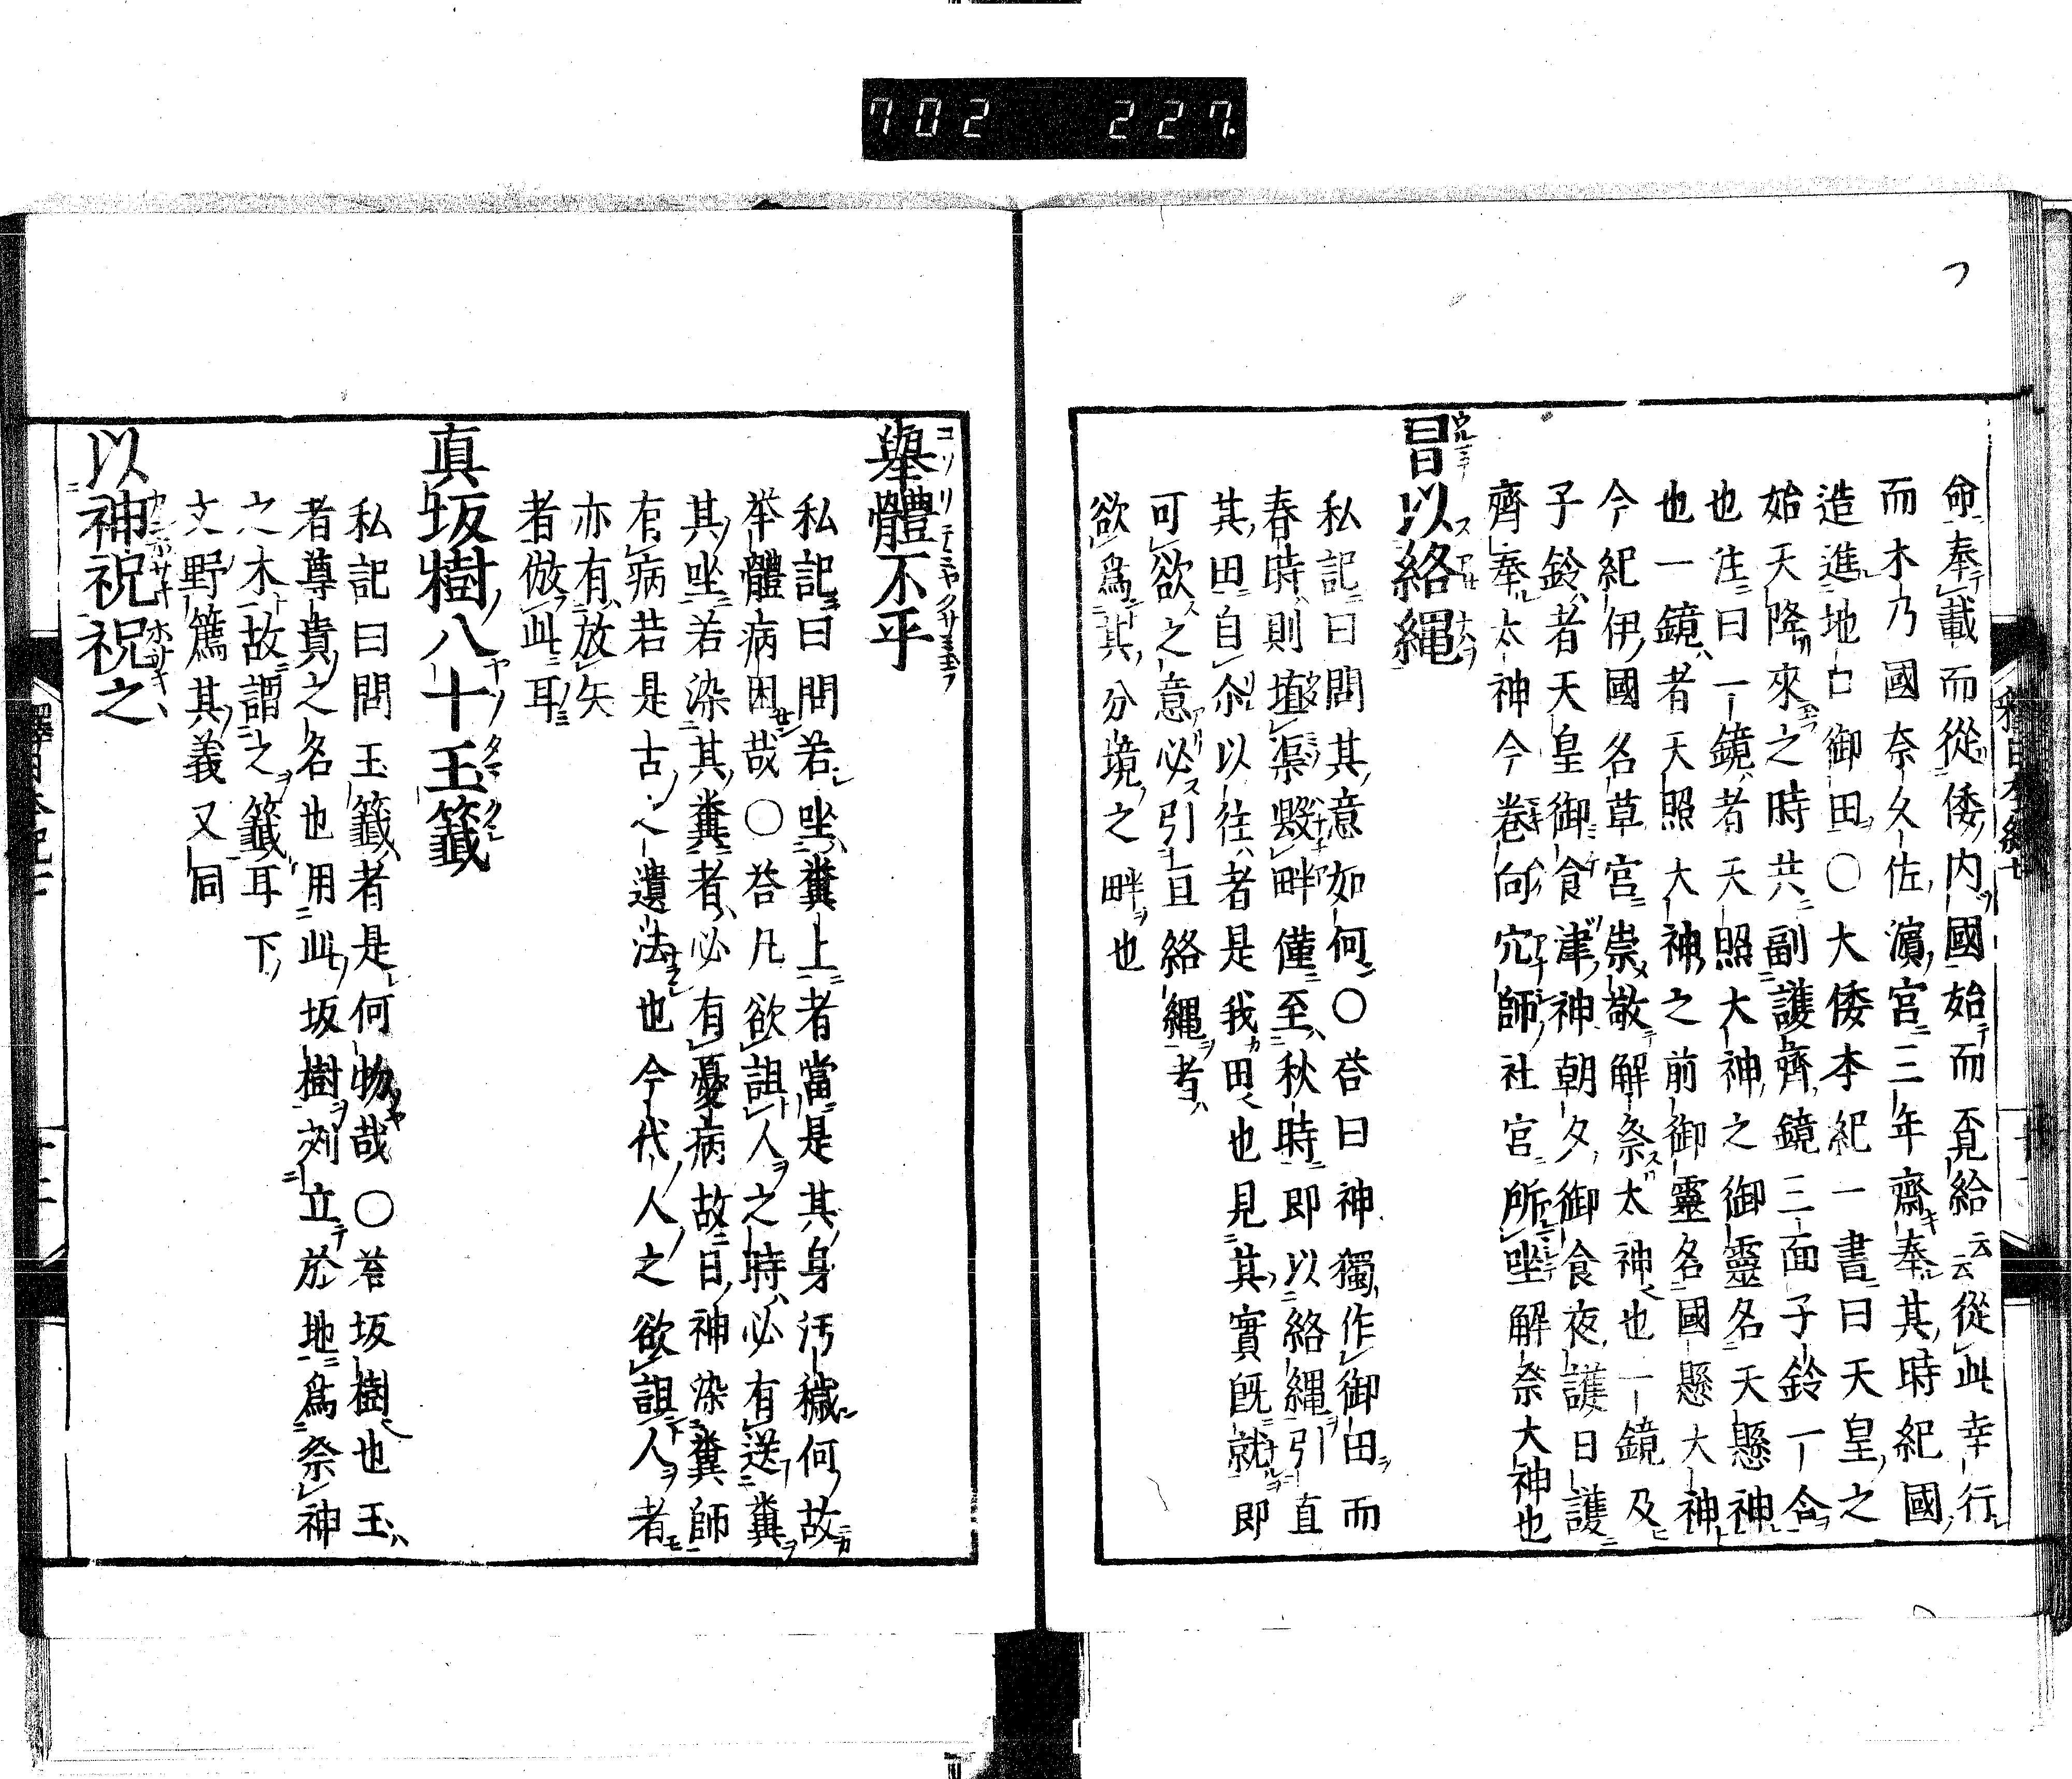 702 227
釋日本紀七
命奉載而從倭内國始而覔給云云從此幸行
而木乃國奈久佐濱宮三年齋奉其時紀國
造進地口御田○大倭本紀一書曰天皇之
始天降來之時共副護齊鏡三面子鈴一合
也注曰一鏡者天照大神之御靈名天懸神
也一鏡者天照大神之前御靈名國懸大神
今紀伊國名草宮崇敬解祭太神也一鏡及
子鈴者天皇御食津神朝夕御食夜護日護
齊奉太神今卷向穴師社宮所坐解祭大神也
冒以絡縄
私記曰問其意如何○答曰神獨作御田而
春時則埴渠毀畔僅至秋時即以絡縄引直
其田自尒以往者是我田也見其實旣就即
可欲之意必引旦絡繩者
欲爲其分境之畔也
擧體不平
私記曰問若坐糞上者當是其身汚穢何故
举體病困哉○答凡欲詛人之時必有送糞
其坐若染其糞者必有憂病故日神染糞師
有病若是古人遺法也今代人之欲詛人者
亦有放矢
者倣此耳
真坂樹八十玉籤
私記曰問玉籤者是何物哉○答坂樹也玉
者尊貴之名也用此坂樹刾立於地爲祭神
之木故謂之籤耳下
文野篶其義又同
以神祝祝之